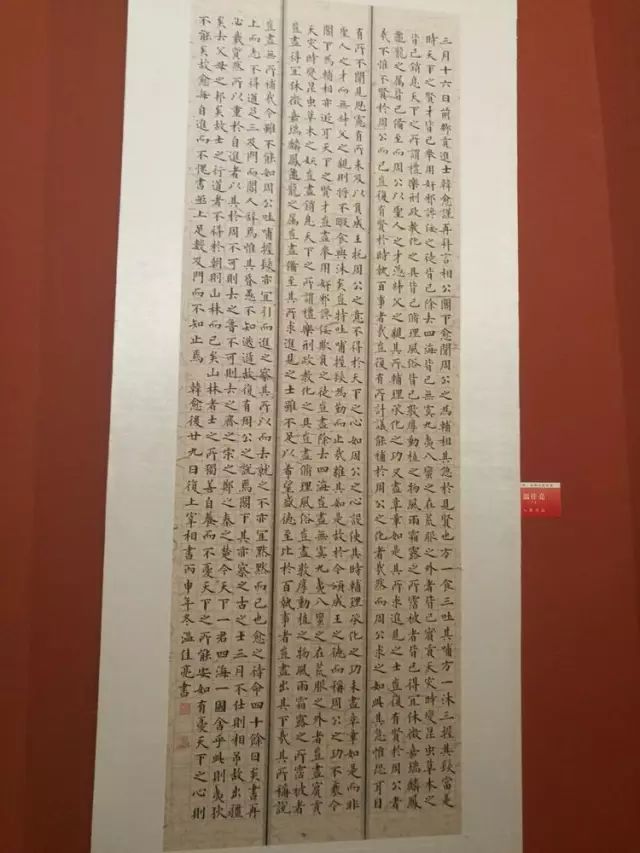 三月十六日前鄉貢進士韓愈謹再拜言相公閣下愈聞周公之為輔相其急於見賢也方一食三吐其哺方一沐三握其髮當是
時天下之賢才皆已舉用奸邪讒佞之徒皆已除去四海皆已無虞九夷八蠻之在荒服之外者皆已賓貢天災時變昆虫草木之
皆已銷息天下之所謂禮樂刑政教化之具皆已脩理風俗皆已敦厚動植之物風雨霜露之所霑被者皆已得宜休徵嘉瑞麟鳳
龜龍之屬皆已備至而周公以聖人之才憑叔父之親其所輔理承化之功又盡章章如是其所求進見之士豈復有賢於周公者
哉不惟不賢於周公而已豈復有賢於時執事者哉豈復有所計議能補於周公之化者哉然而周公求之如此其急惟恐耳目
有所不聞見思慮有所未及以負成王托周公之意不得於天下之心如周公之心設使其時輔理承化之功未盡章章如是而非
聖人之才而無叔父之親則將不暇食與沐矣豈特吐哺握髮為勤而止哉維其如是故於今頌成王之德而稱周公之功不衰今
閣下為輔相亦近耳天下之賢才豈盡舉用奸邪讒佞欺負之徒豈盡除去四海豈盡無虞九夷八蠻之在荒服之外者豈盡賓貢
天災時變昆虫草木之妖豈盡銷息天下之所謂禮樂刑政教化之具豈盡脩理風俗豈盡敦厚動植之物風雨霜露之所霑被者
豈盡得宜休徵嘉瑞麟鳳龜龍之屬豈盡備至其所求進見之士雖不足以希望盛德至比於百執事者豈盡出其下哉其所稱說
豈盡無所補哉今雖不能如周公吐哺握髮亦宜引而進之察其所以而去就之不宜默默而已也愈之待命四十餘日矣書再
上而志不得通足三及門而閽人辭焉惟其昏愚不知逃遁故復有周公之說焉閣下其亦察之古之士三月不仕則相弔故出疆
必載質然所以重於自進者以其於周不可則去之魯不可則去之齊之宋之鄭之秦之楚今天下一君四海一國舍乎此則夷狄
矣去父母之邦矣故士之行道者不得於朝則山林而已矣山林者士之所獨善自養而不憂天下之所能安如有憂天下之心則
不能矣故愈每自進而不愧書亟上足數及門而不知止焉 韓愈後廿九日復上宰相書丙申年冬溫佳亮書
溫佳亮